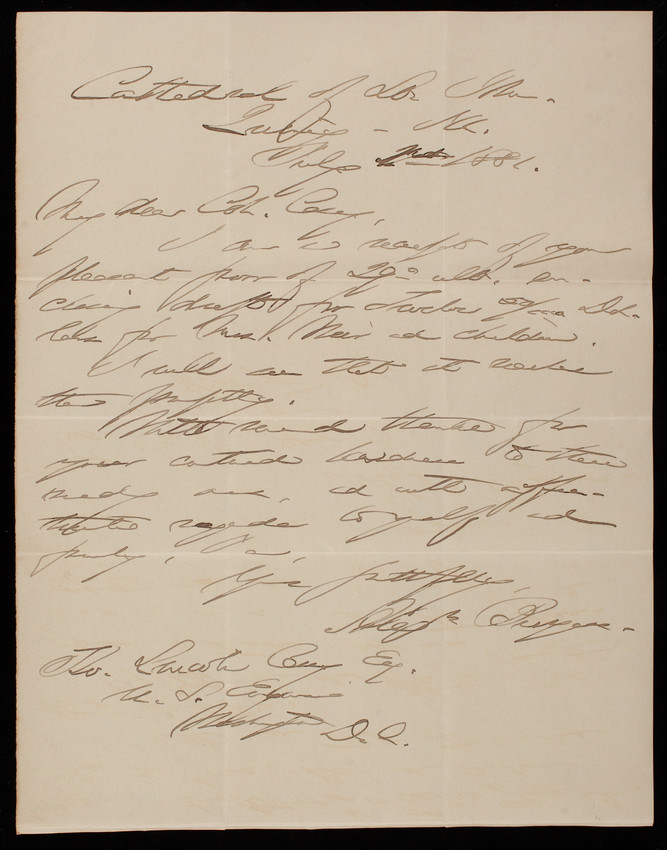 Cathedral of St. John.
Quincy - Ills.
July 2nd 1881.
My dear Col. Casey,
I am in receipt of your
pleasant favor of 29th ult. en-
closing draft for Twelve 50/100 Dol-
lars for Mrs. Weir and children.
I will see that it reaches
them promptly.
With renewed thanks for
your continued kindness to these
needy ones, and with affec-
tionate regards to yourself and
family, I am,
Yrs faithfully,
Alex Burgess.
Tho. Lincoln Casey Esq.
U. S. Engineers
Washington D. C.